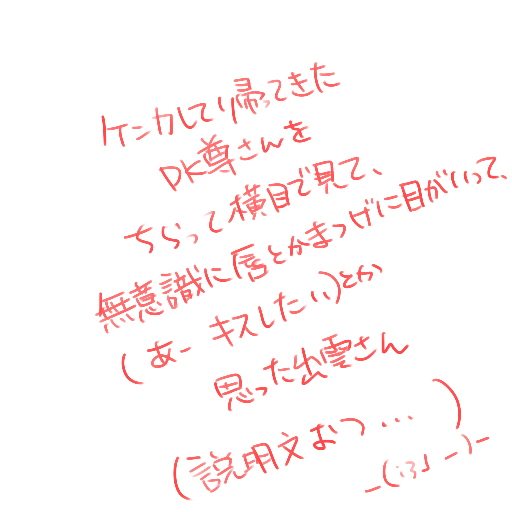 ケンカして帰ってきた
DK尊さんを
ちらって横目で見て、
無意識に唇とかまつげに目がいって、
(あー キスしたい)とか
思った出雲さん
(説明文おつ...)
_(:3」-)-